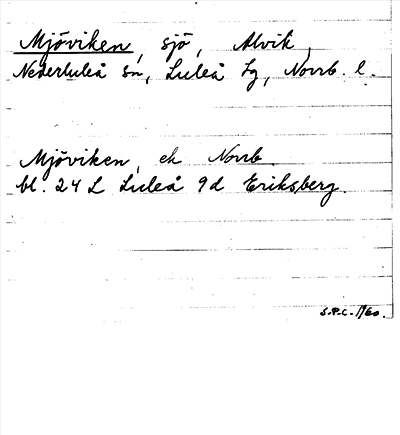 Mjöviken, sjö, Alvik,
Nederluleå sn, Luleå tg, Norrb. l.
Mjöviken, ek Norrb.
bl. 24 L Luleå 9d Eriksberg.
S.P.C. 1960.